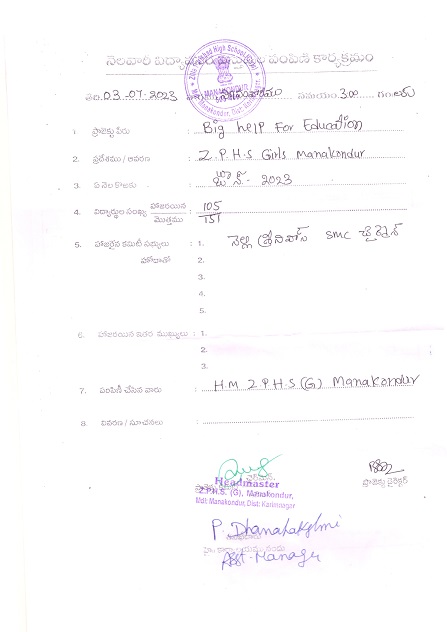 నెలవారీ విద్యా పంపిణీ కార్యక్రమం
తేది. 03-07-2023 సమయం. 3:00 గం.లకు
1 ప్రాజెక్టు పేరు : Big help For Education
2. ప్రదేశము / ఆవరణ : Z.P.H.S Girls Manakondur
3. ఏ నెల కొఱకు : జూన్ - 2023
4. విద్యార్థుల సంఖ్య హాజరయిన మొత్తము : 105/151
5. హాజరైన కమిటీ సభ్యులు హోదాతో : 1. శ్రీనివాస్ SMC చైర్మన్
2.
3.
4.
5.
6. హాజరయిన ఇతర ముఖ్యులు : 1.
2.
3.
7. పంపిణీ చేసిన వారు : H.M Z.P.H.S (G) Manakondur
8. వివరణ / సూచనలు :
Headmaster
Z.P.H.S. (G), Manakondur,
Mdl: Manakondur, Dist: Karimnagar
ప్రాజెక్టు డైరెక్టర్
P. Dhanalakshmi
Asst-Manager